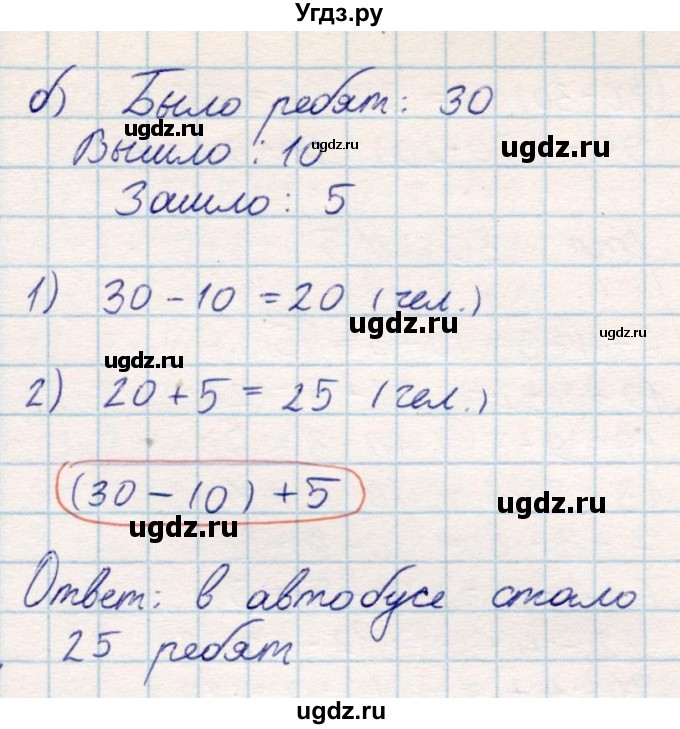 Угдз.ру
б) Было ребят: 30
ugdz.ru
ugdz.ru
ugdz.ru
Вышло: 10
Зашло: 5
1) 30 - 10 = 20 (чел.)
ugdz.ru
ugdz.ru
ugdz.ru
2) 20 + 5 = 25 (чел.)
(30 - 10) + 5
ugdz.ru
ugdz.ru
Ответ: в автобусе стало
25 ребят
ugdz.ru